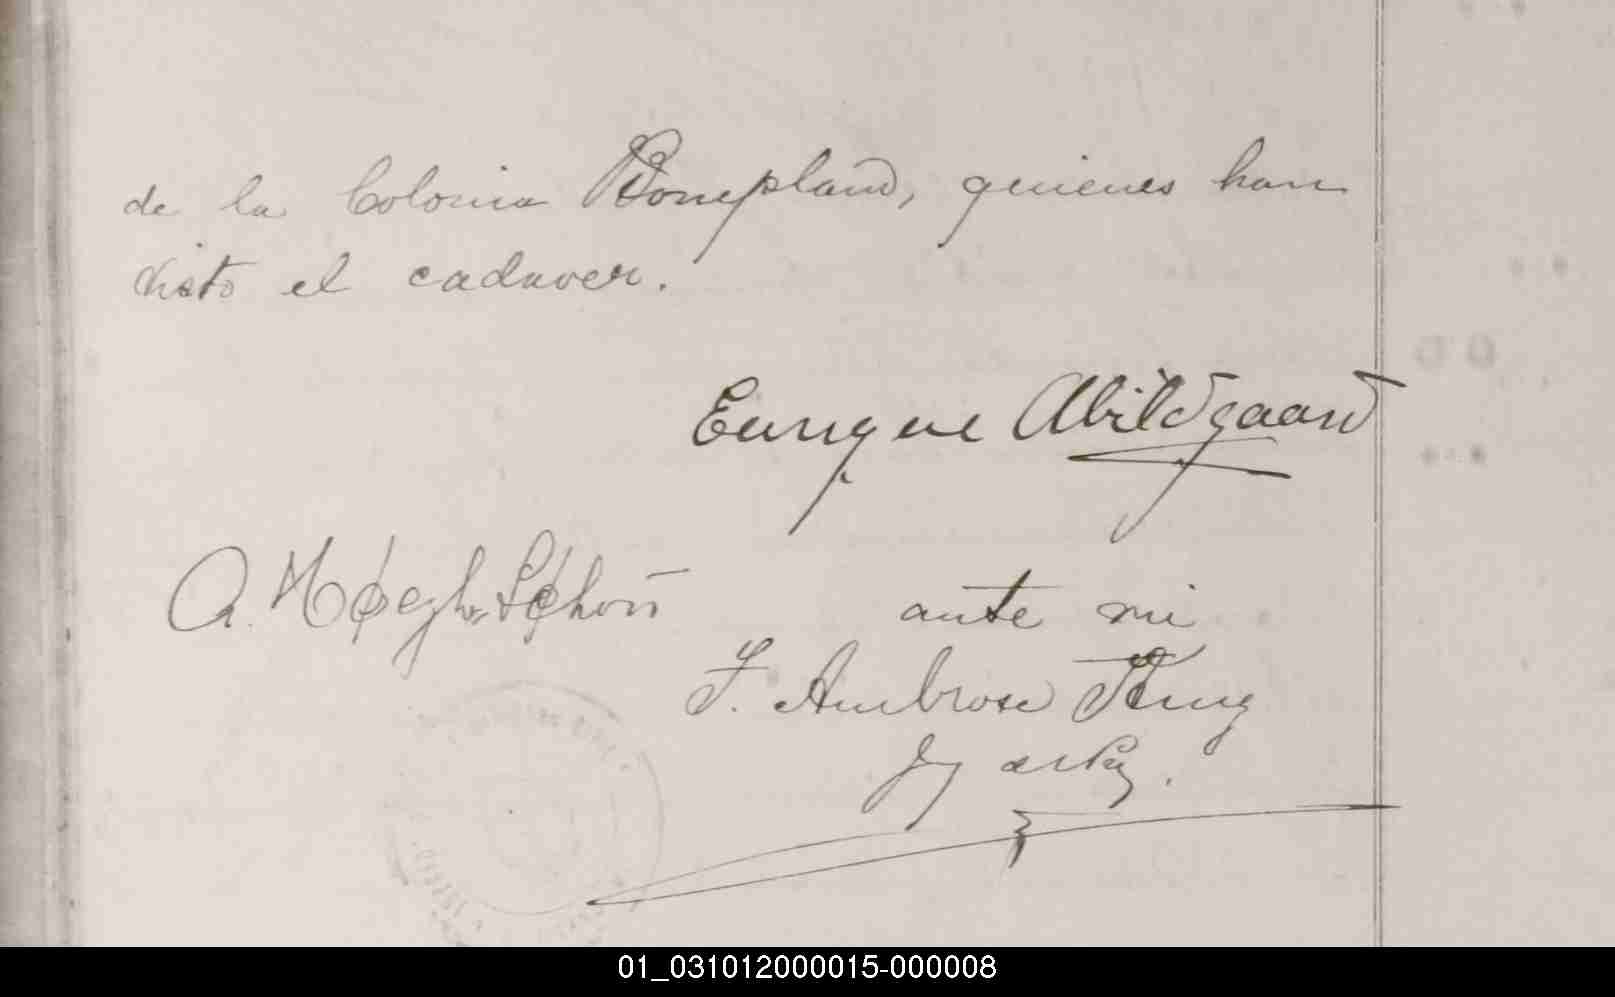 de la Colonia Bonpland, quienes han
visto el cadaver.
Enrique Abildgaard
A. Høegh-Schøn
ante mi
F. Ambrose King
01_031012000015-000008